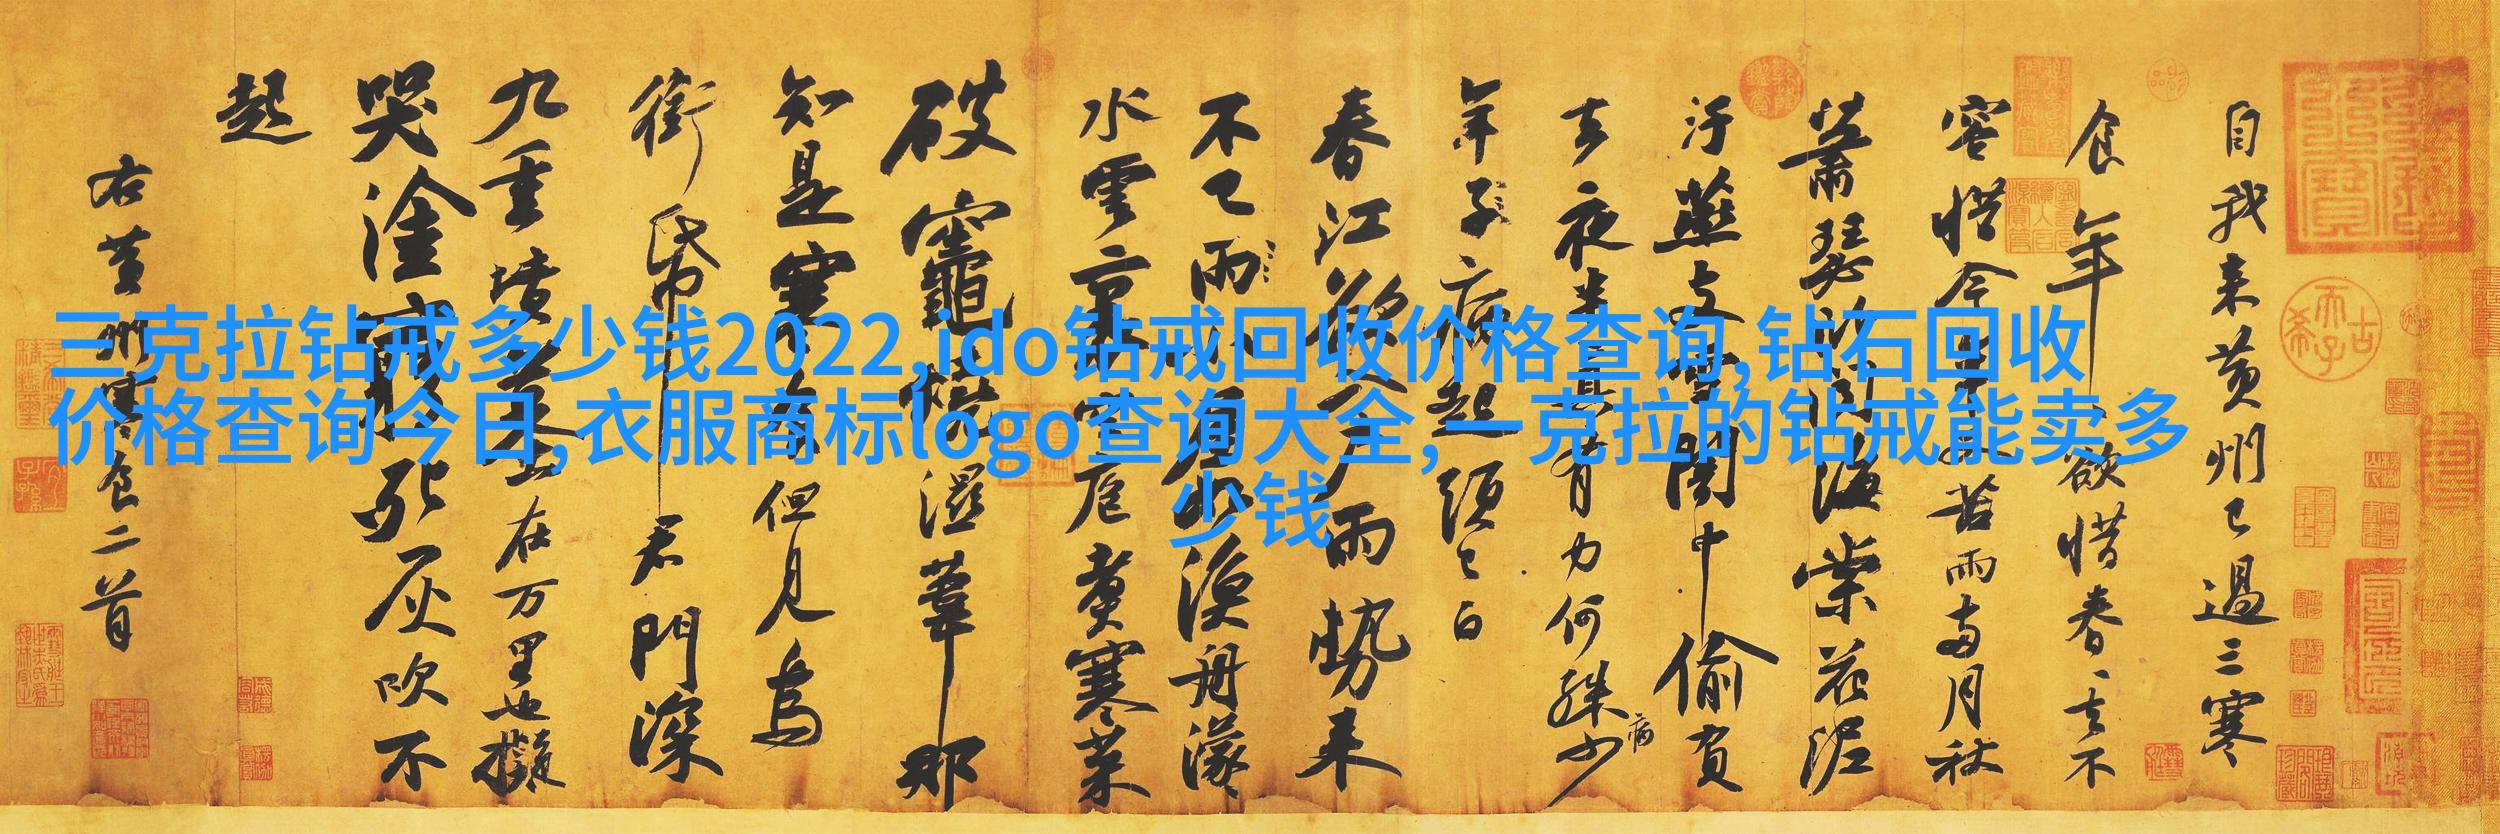 三克拉钻戒多少钱2022,ido钻戒回收价格查询,钻石回收
价格查询今日,衣服商标logo查询大全,一克拉的钻戒能卖多
少钱
自我来黄州已過三寒
食年ゝ欲惜春ゝ去不
容惜今年又苦雨兩月秋
蕭瑟卧聞海棠花泥
汙燕支雪闇中偷負
去夜半真有力何殊少
病
年子病起頭已白
春江欲入户雨勢来
不已雨小屋如漁舟濛
水雲裏空庖煮寒菜
破竈燒濕葦那
知是寒食但見烏
銜帋君門深
九重墳墓在万里也擬
哭塗窮死灰吹不
起
右黄州寒食二首